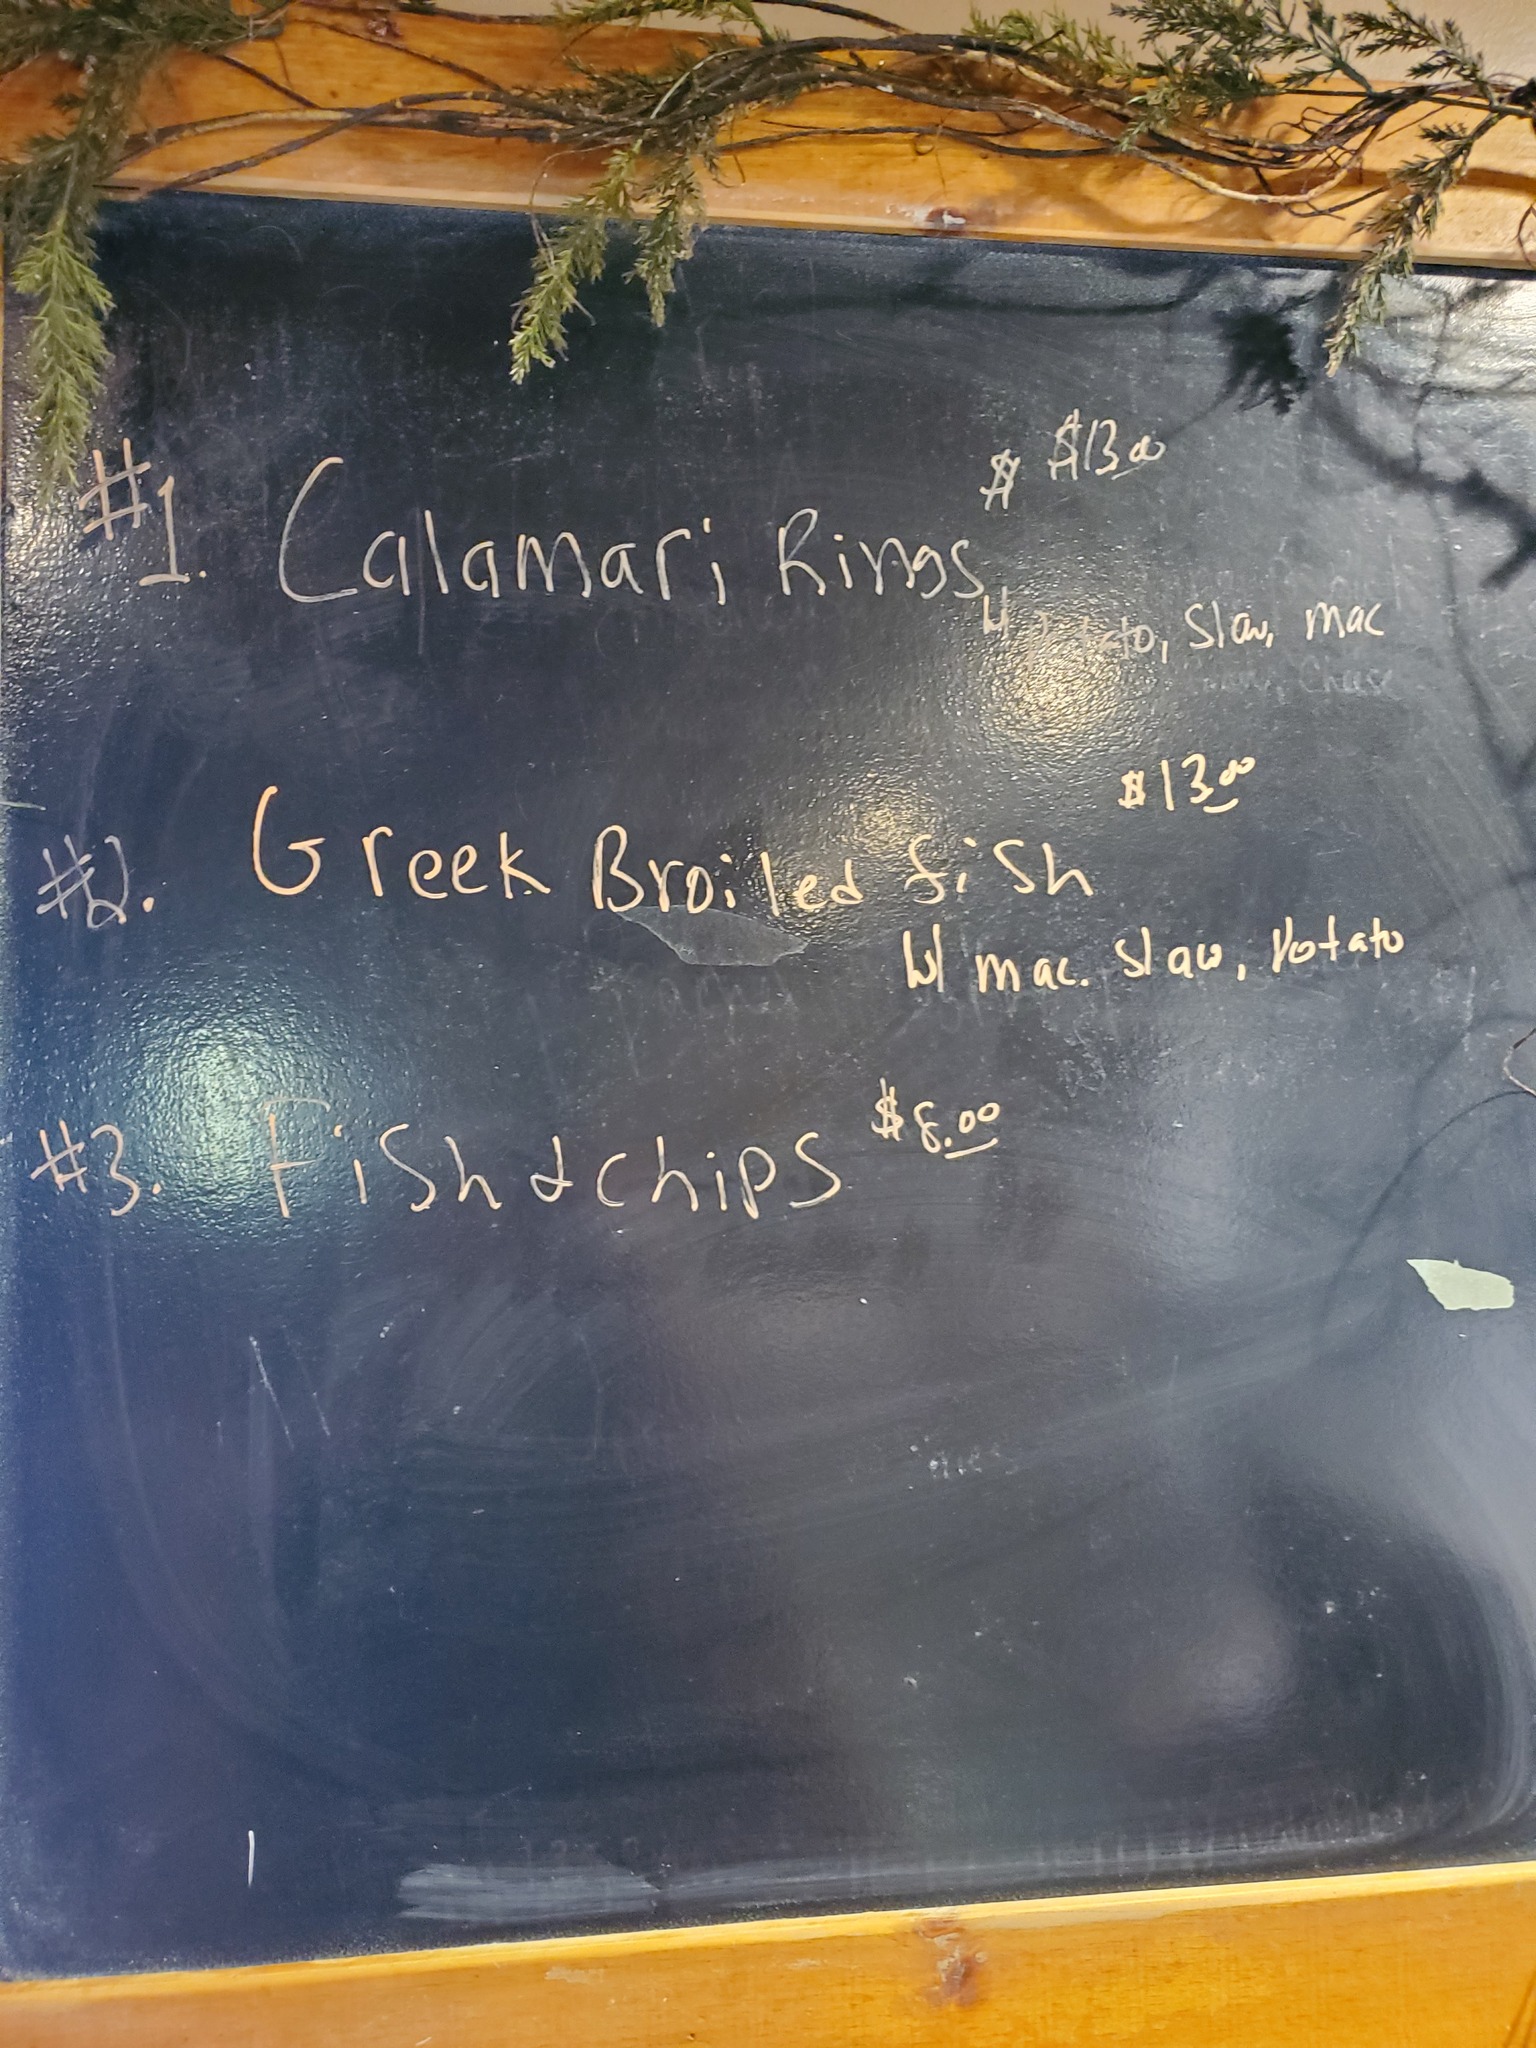 $ $13.00
#1. Calamari Rings
w/ potato, Slaw, mac
$13.00
#2. Greek Broiled fish
w/ mac. slaw, potato
#3. Fish & chips $8.00